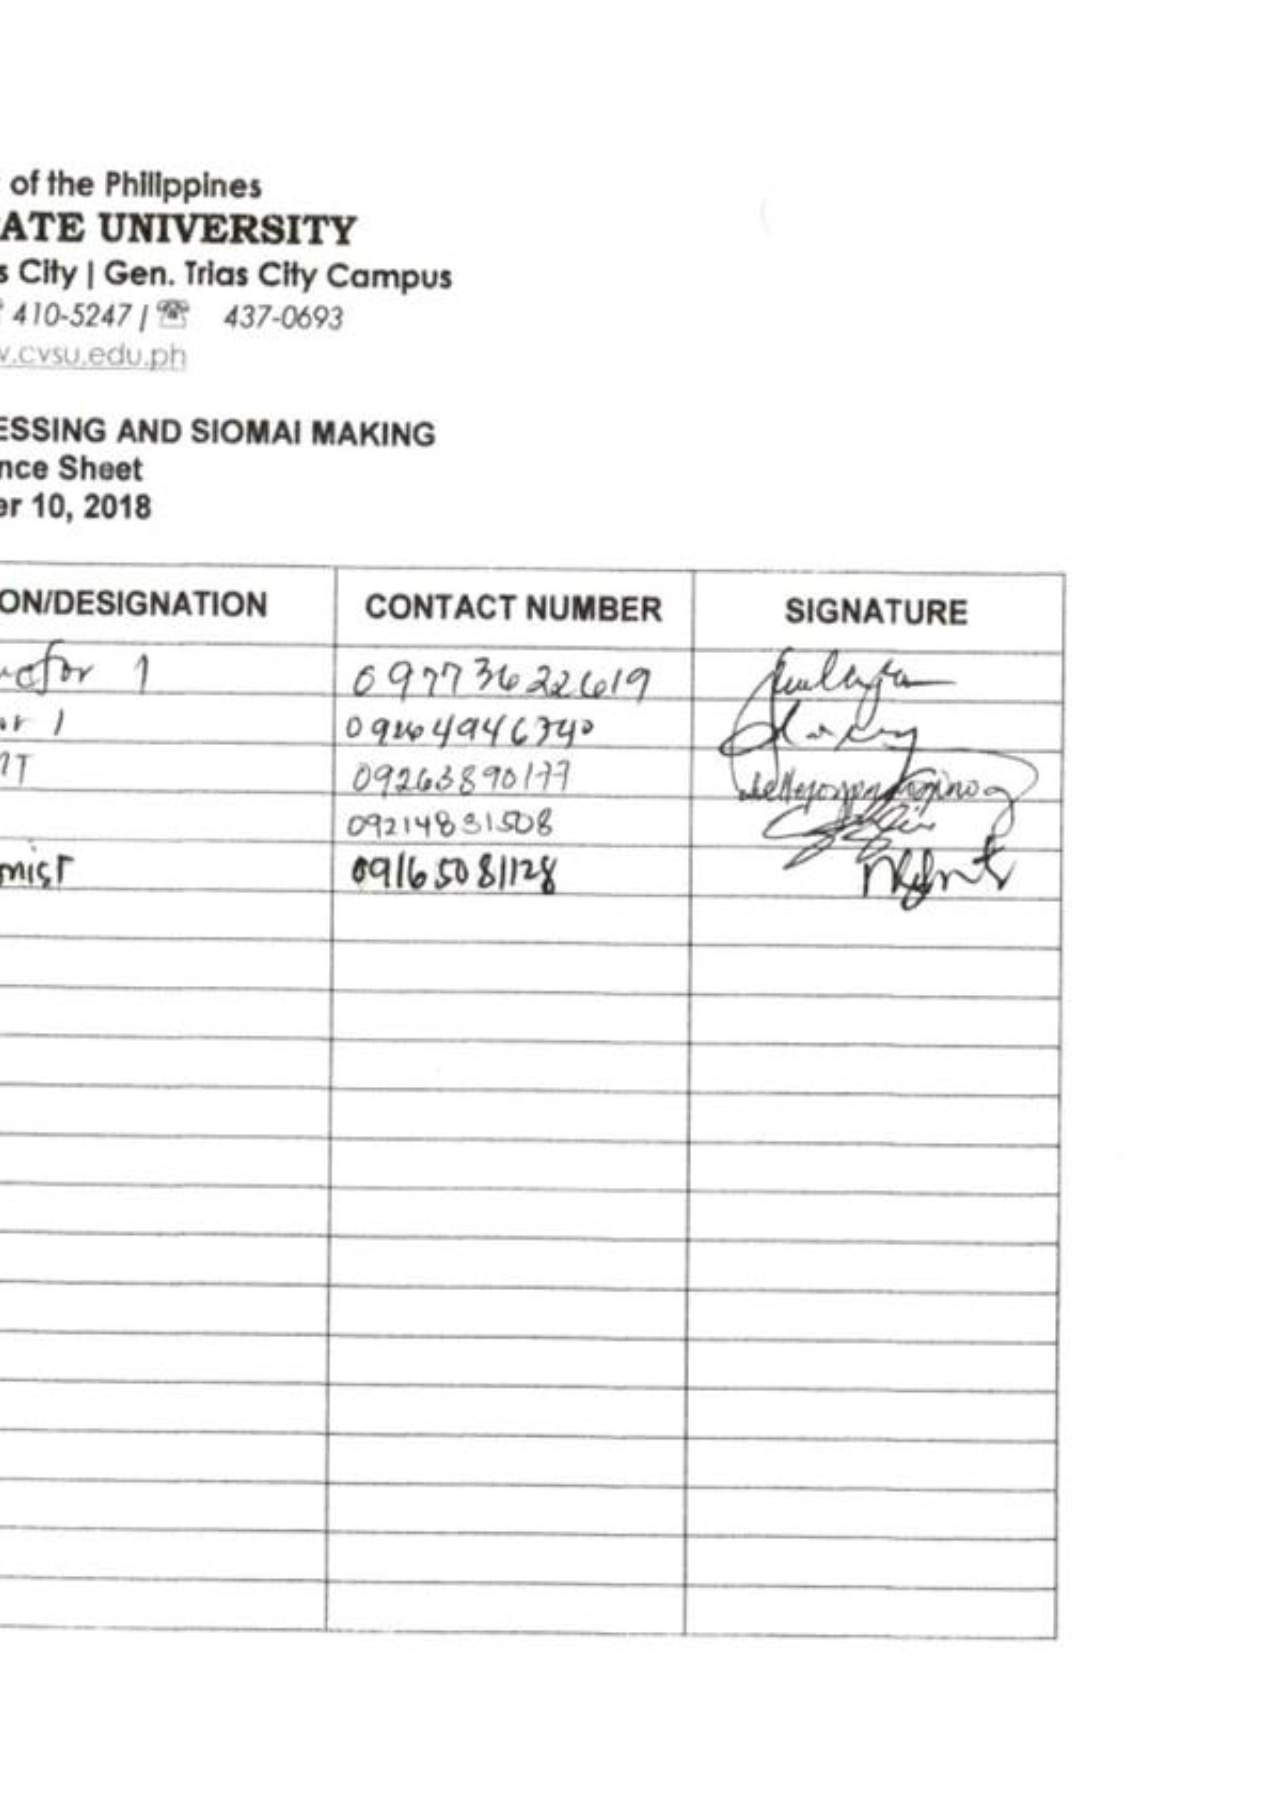 of the Philippines
ATE UNIVERSITY
s City | Gen. Trias City Campus
410-5247 | ☏ 437-0693
v.cvsu.edu.ph
ESSING AND SIOMAI MAKING
nce Sheet
er 10, 2018
ON/DESIGNATION CONTACT NUMBER SIGNATURE
uctor 1 09773622619
or 1
NT 09263890177
09214831508
mist 09165081128